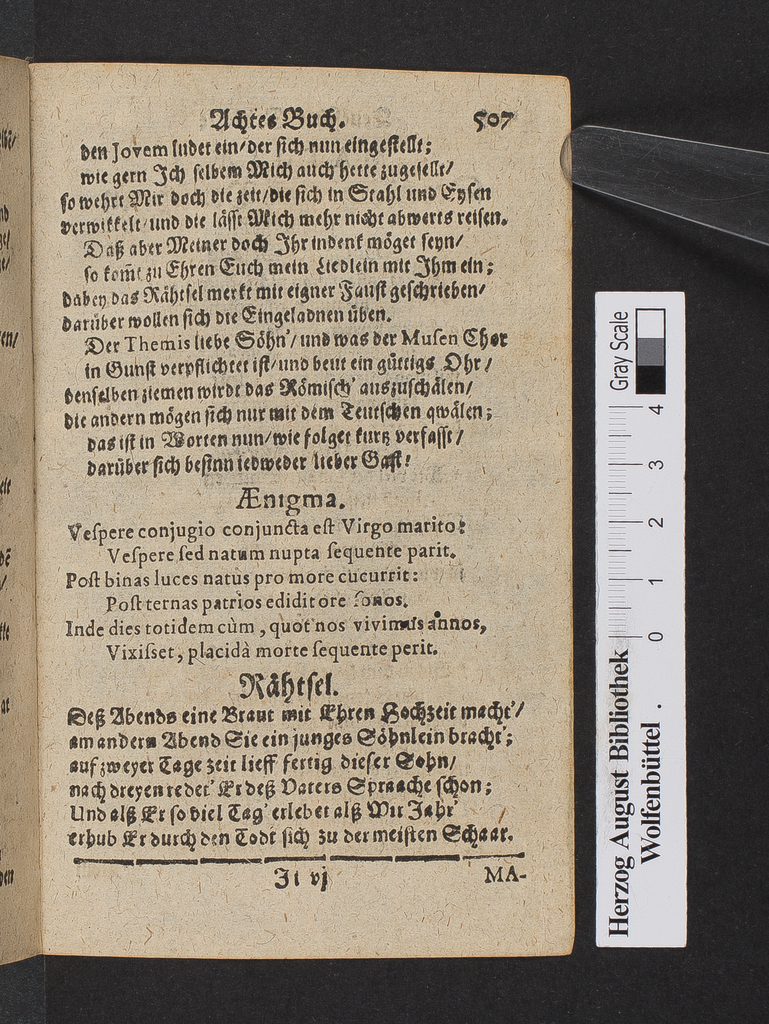 Achtes Buch. 507
den Jovem ludet ein/der sich nun eingestellt;
wie gern Jch selbem Mich auch hette zugesellt/
so wehrt Mir doch die zeit/die sich in Stahl und Eysen
verwikkelt/und die lässt Mich mehr nicht abwerts reisen.
Daß aber Meiner doch Jhr indenk möget seyn/
so kom̃t zu Ehren Euch mein Liedlein mit Jhm ein;
dabey das Rähtsel merkt mit eigner Faust geschrieben/
darüber wollen sich die Eingeladnen üben.
Der Themis liebe Söhn'/und was der Musen Chor
in Gunst verpflichtet ist/und beut ein güttigs Ohr/
denselben ziemen wirdt das Römisch' auszuschälen/
die andern mögen sich nur mit dem Teutschen qwälen;
das ist in Worten nun/wie folget kurtz verfasst/
darüber sich besinn iedweder lieber Gast!
Ænigma.
Vespere conjugio conjuncta est Virgo marito:
Vespere sed natum nupta sequente parit.
Post binas luces natus pro more cucurrit:
Post ternas patrios edidit ore sonos.
Inde dies totidem cùm, quot nos vivimus annos,
Vixisset, placidâ morte sequente perit.
Rähtsel.
Deß Abends eine Braut mit Ehren Hochzeit macht'/
am andern Abend Sie ein junges Söhnlein bracht';
auf zweyer Tage zeit lieff fertig dieser Sohn/
nach dreyen redet' Er deß Vaters Spraache schon;
Und alß Er so viel Tag' erlebet alß Wir Jahr'
erhub Er durch den Todt sich zu der meisten Schaar.
Ji vj MA-
Gray Scale
4
3
2
1
0
Herzog August Bibliothek
Wolfenbüttel .